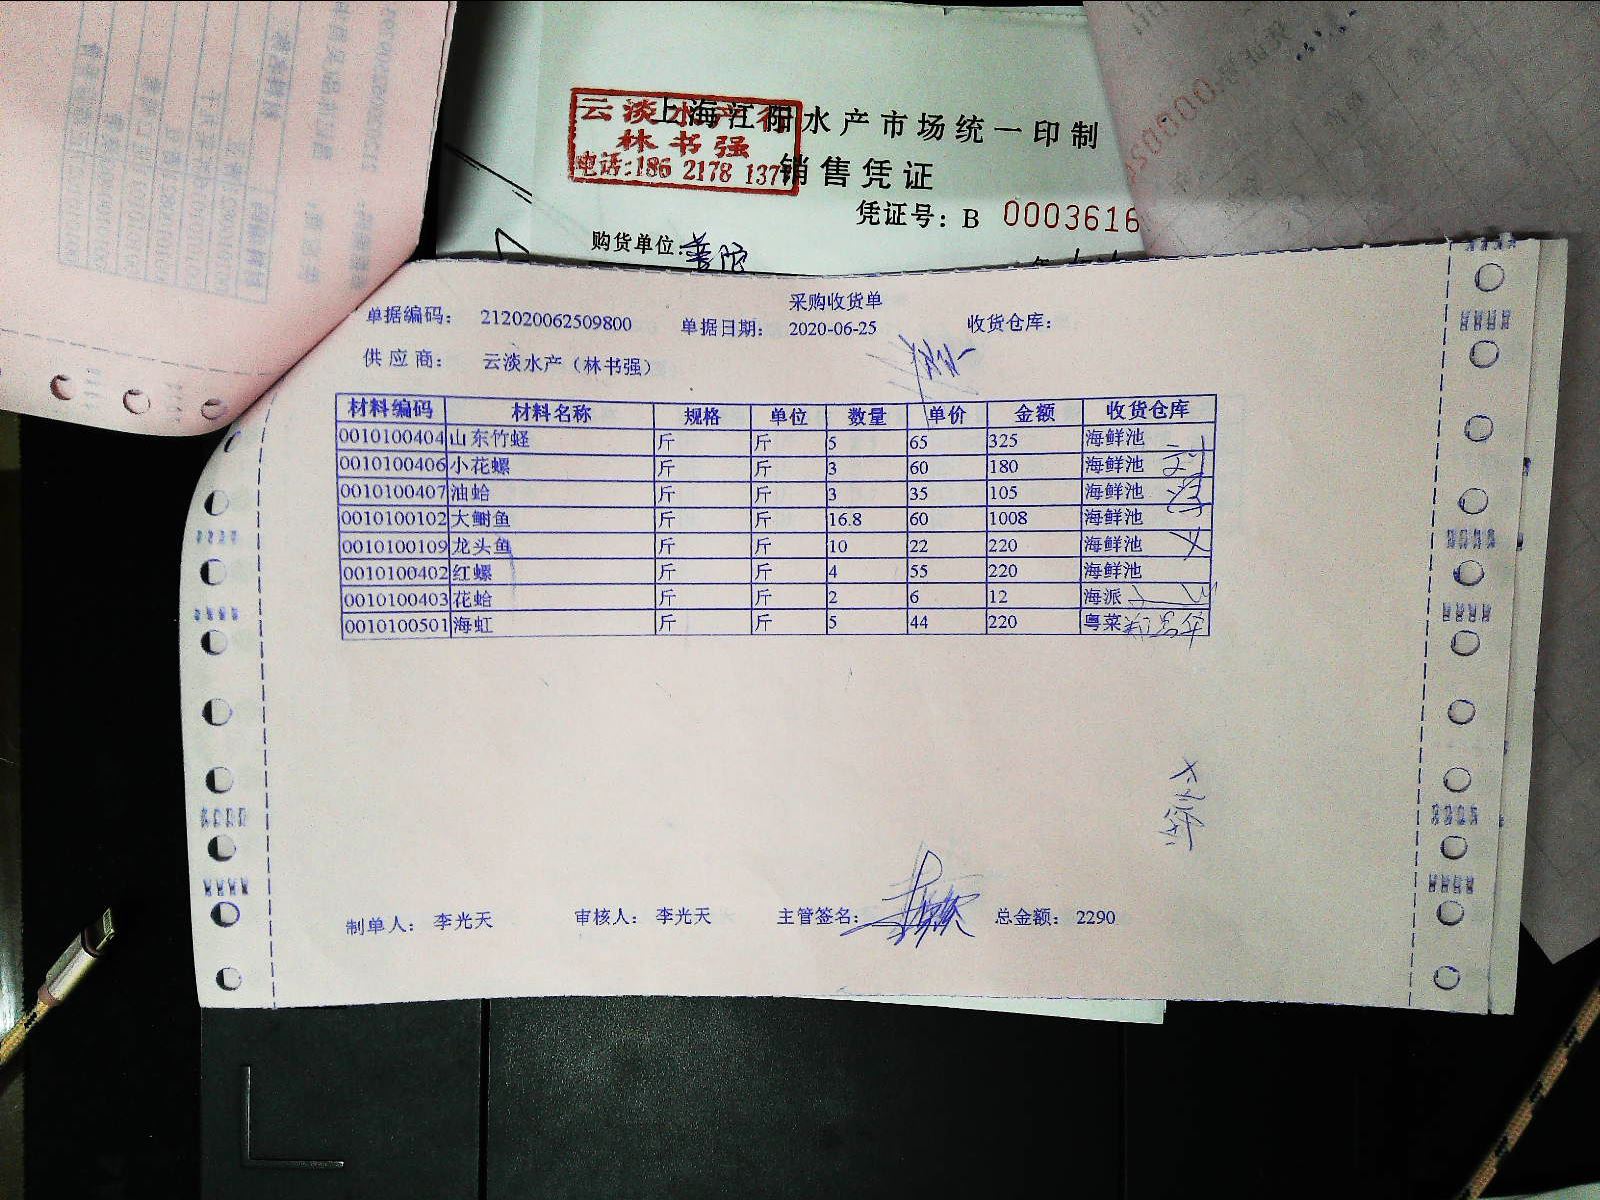 云淡水产行
林书强
电话:186 2178 137
上海江阳水产市场统一印制
销售凭证
凭证号: B 0003616
购货单位: 普陀
采购收货单
单据编码: 212020062509800 单据日期: 2020-06-25 收货仓库:
供应商: 云淡水产（林书强）
材料编码 材料名称 规格 单位 数量 单价 金额 收货仓库
0010100404 山东竹蛏 斤 斤 5 65 325 海鲜池
0010100406 小花螺 斤 斤 3 60 180 海鲜池
0010100407 油蛤 斤 斤 3 35 105 海鲜池
0010100102 大鲥鱼 斤 斤 16.8 60 1008 海鲜池
0010100109 龙头鱼 斤 斤 10 22 220 海鲜池
0010100402 红螺 斤 斤 4 55 220 海鲜池
0010100403 花蛤 斤 斤 2 6 12 海派
0010100501 海虹 斤 斤 5 44 220 粤菜
制单人: 李光天 审核人: 李光天 主管签名: 总金额: 2290